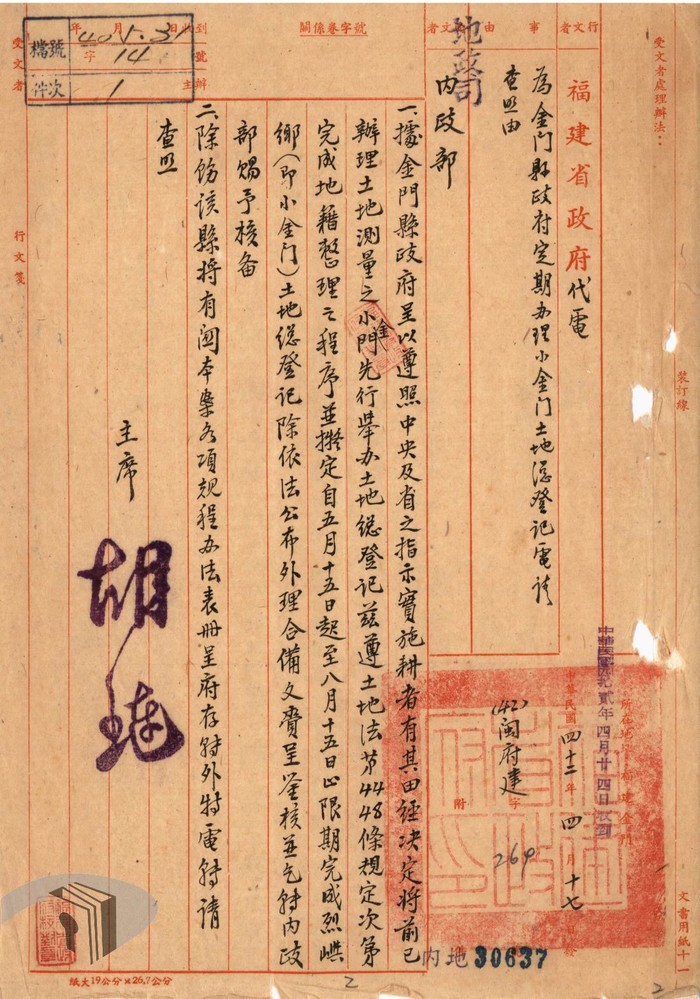 受文者處理辦法:
福建省政府代電
行文者
事由
為金門縣政府定期办理小金门土地總登記電請
查照由
受文者
地政司
內政部
號字卷係關
到收日月年
40 5.3
檔號
字 14 號
件次 1
辦主
受文者
行文箋
裝訂線
文書用紙十一
中華民國肆拾貳年四月廿四日收到
所在地 福建金門
中華民國四十二年四月十七
(42)閩府建字
269
附
一、據金門縣政府呈以遵照中央及省之指示實施耕者有其田逕決定將前已
辦理土地測量之小金門先行舉办土地總登記茲遵土地法第44 48條規定次第
完成地籍整理之程序並擬定自五月十五日起至八月十五日止限期完成烈嶼
鄉(即小金门)土地總登記除依法公布外理合備文賷呈鉴核並乞轉內政
部賜予核备
二、除飭該縣將有関本案各項規程办法表冊呈府存轉外特電轉請
查照
主席
胡璉
內地30637
紙大19公分×26.7公分
2
2